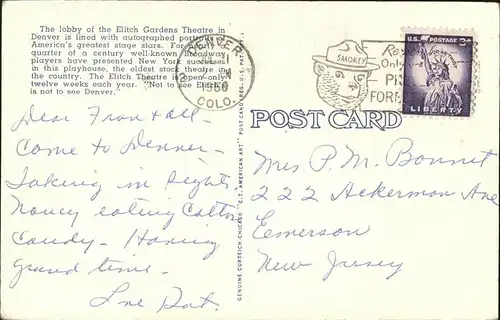 The lobby of the Elitch Gardens Theatre in
Denver is lined with autographed portraits of
America's greatest stage stars. For nearly a
quarter of a century well-known Broadway
players have presented New York successes
in this playhouse, the oldest stock theatre in
the country. The Elitch Theatre is open only
twelve weeks each year. "Not to see Elitch's
is not to see Denver."
DENVER
1960
COLO.
SMOKEY
Only
FORE
U.S. POSTAGE 3¢
LIBERTY
POST CARD
GENUINE CURTEICH-CHICAGO "C.T. AMERICAN ART" POST CARD (REG. U.S. PAT. OFF.)
Dear Fran & all -
Come to Denver -
Taking in sights.
Nancy eating Cotton
Candy - Having
grand time -
Love Dot.
Mrs P. M. Bonnet
222 Ackerman Ave
Eemerson
New Jersey